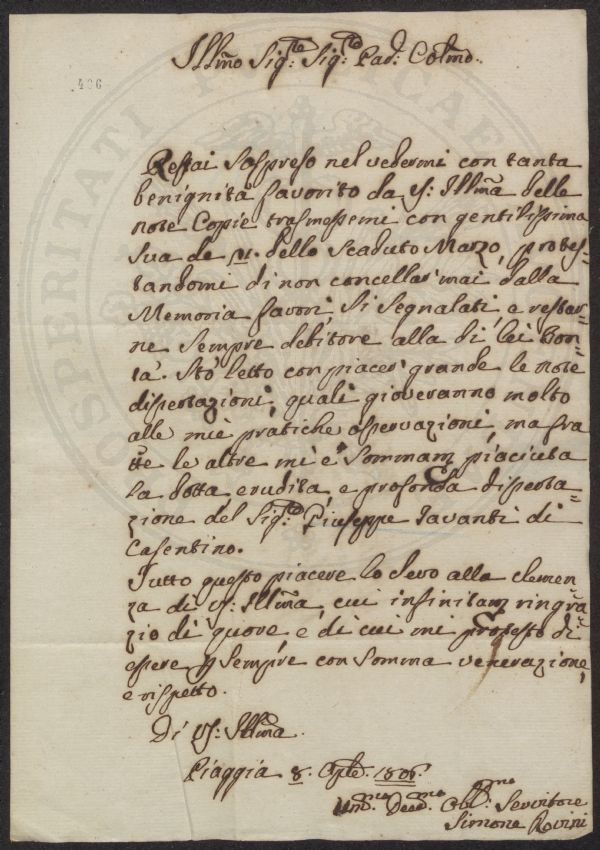 Illmo Sigre: Sigre Pad: Colmo.
406
PROSPERITATI PUBLICAE
Restai sospreso nel vedermi con tanta
benignità favorito da V: Illma delle
note Copie trasmessemi con gentilissima
sua de 11. dello Scaduto Marzo, protes=
tandomi di non concellar mai dalla
Memoria favori, si segnalati, e restar=
ne sempre debitore alla di lei Bon=
tà. Hò letto con piacer grande le note
dissertazioni, quali gioveranno molto
alle mie pratiche osservazioni, ma fra
tte le altre mi è sommam piaciuta
la dotta erudita, e profonda disserta=
zione del Sigre Giuseppe Tavanti di
Casentino.
Tutto questo piacere lo devo alla clemen=
za di V: Illma, cui infinitam ringra=
zio di quore, e di cui mi protesto di
essere p sempre con somma venerazione,
e rispetto.
Di V: Illma
Piaggia 8. Aple. 1806.
Umo. Devmo Obl:mo Servitore
Simone Rovini